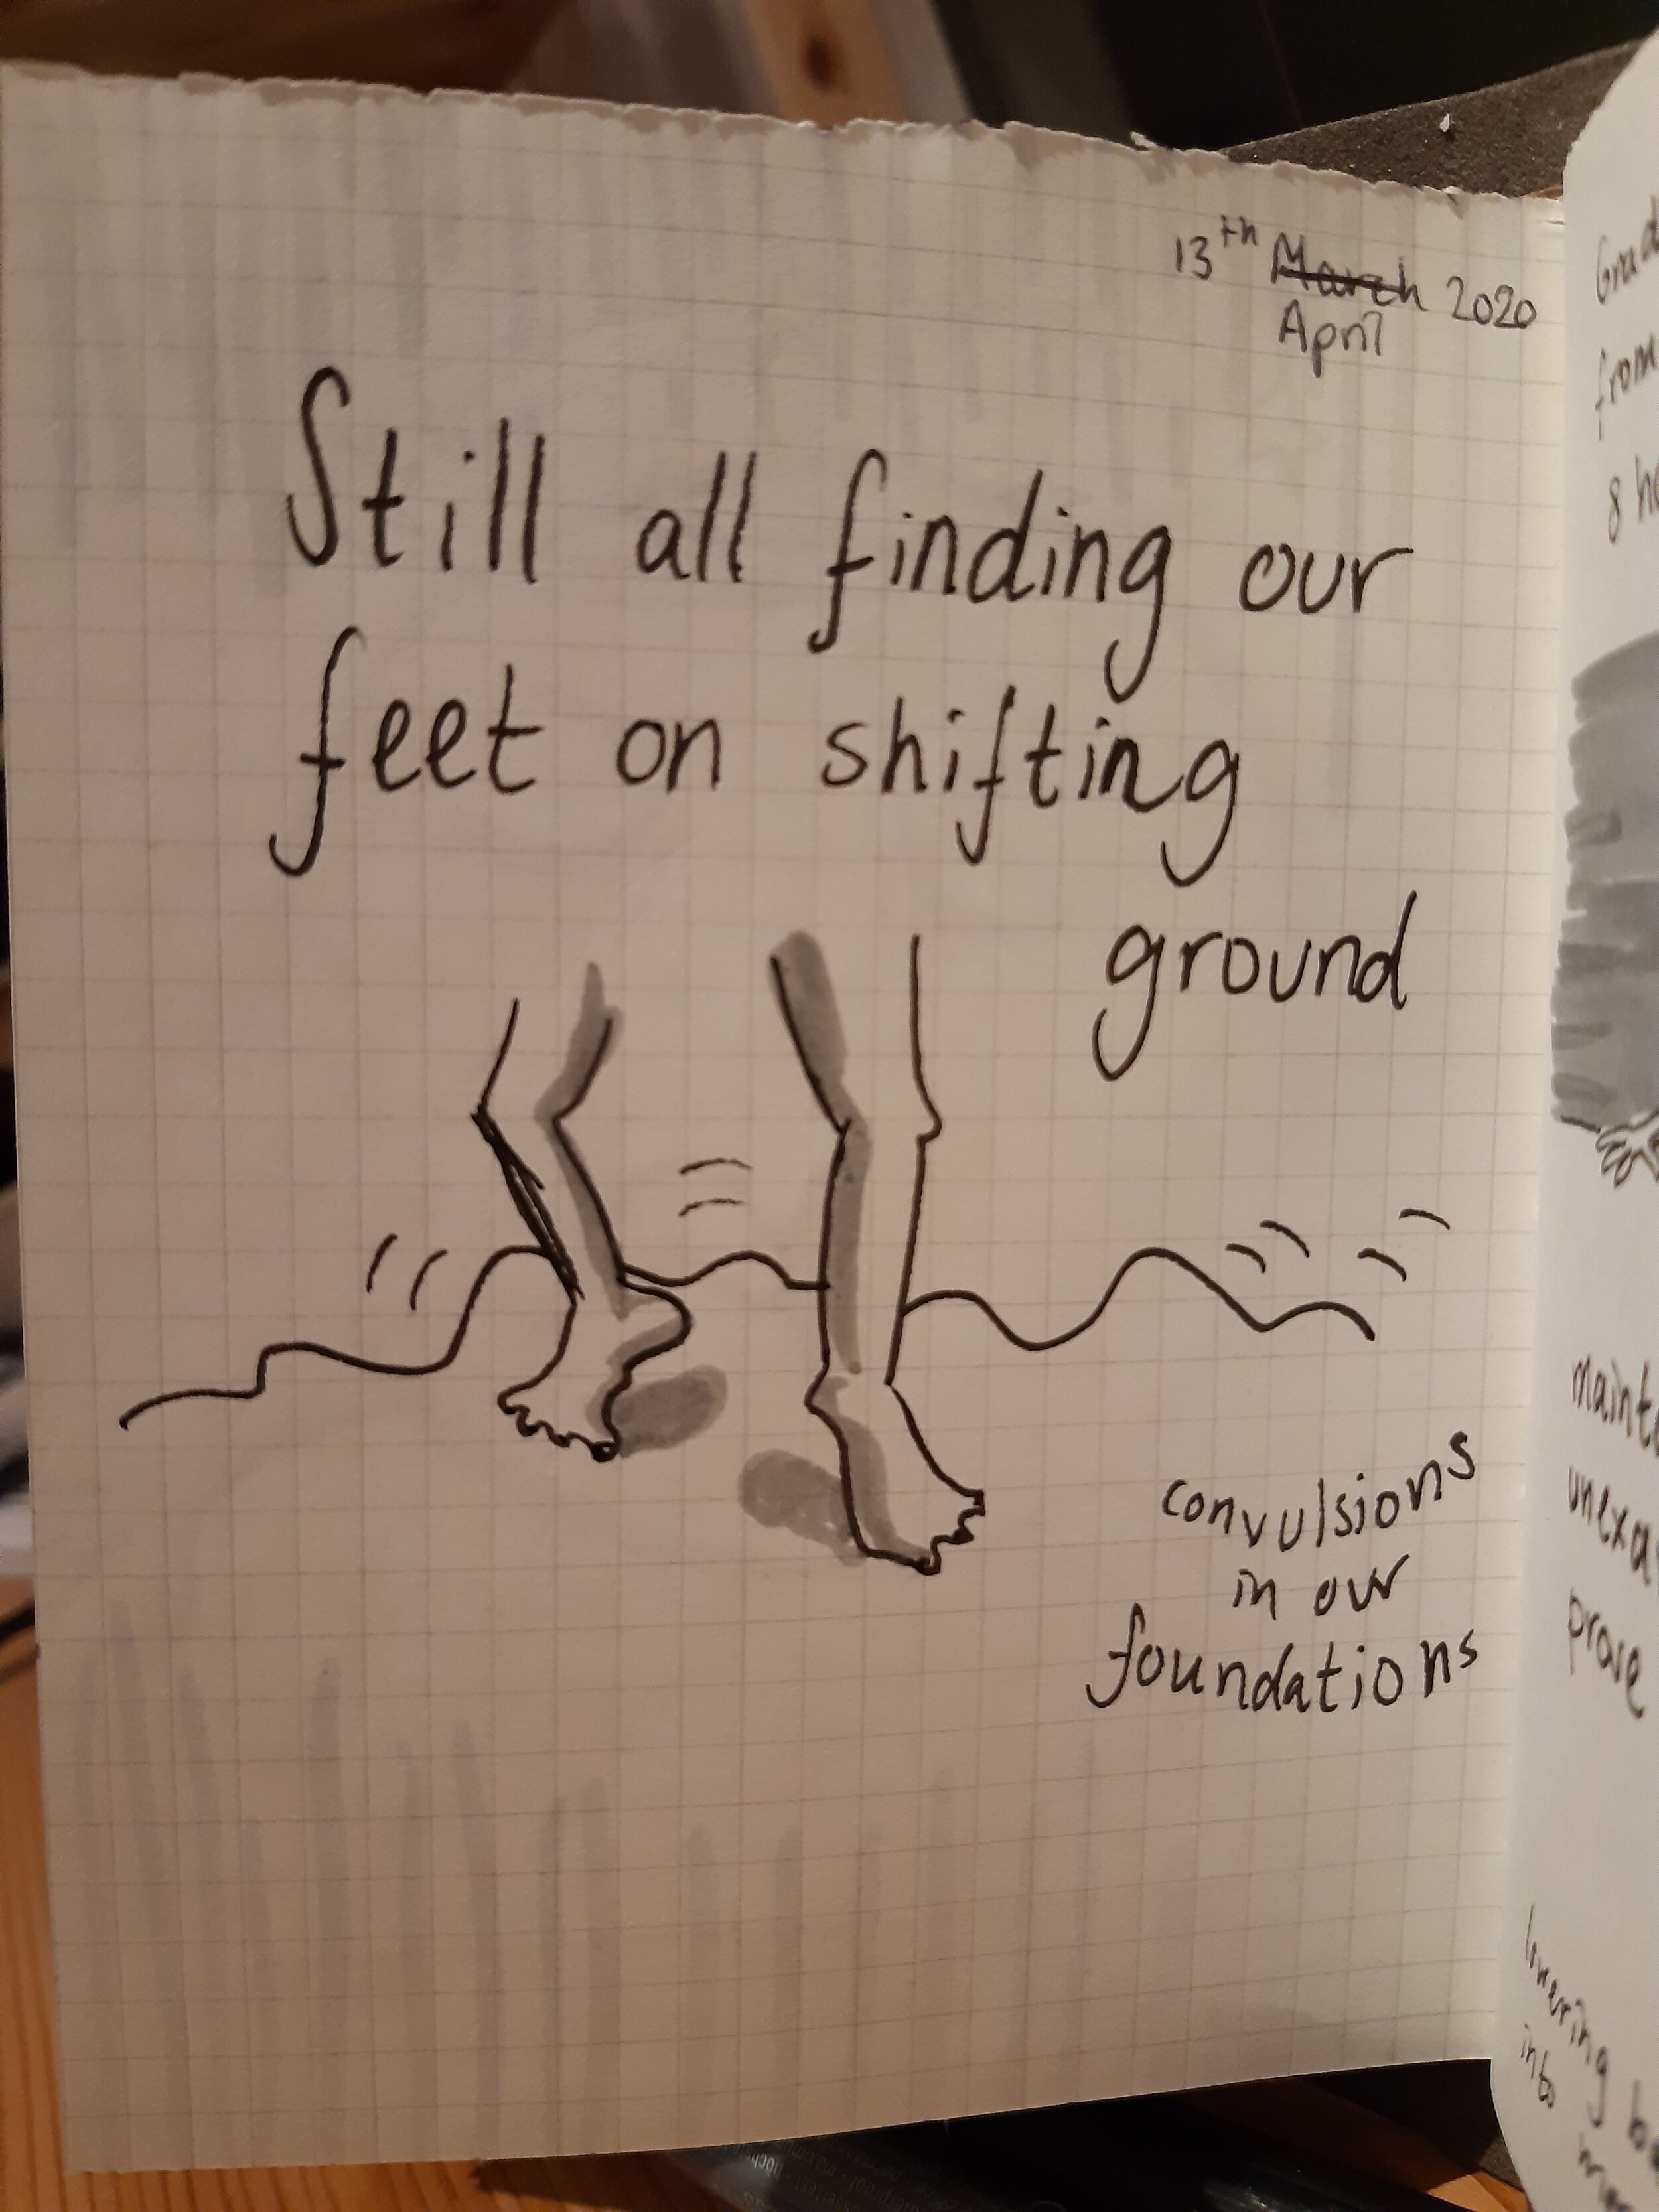 13th March 2020
April
Still all finding our
feet on shifting
ground
convulsions
in our
foundations
from
8
prove
lowering
into